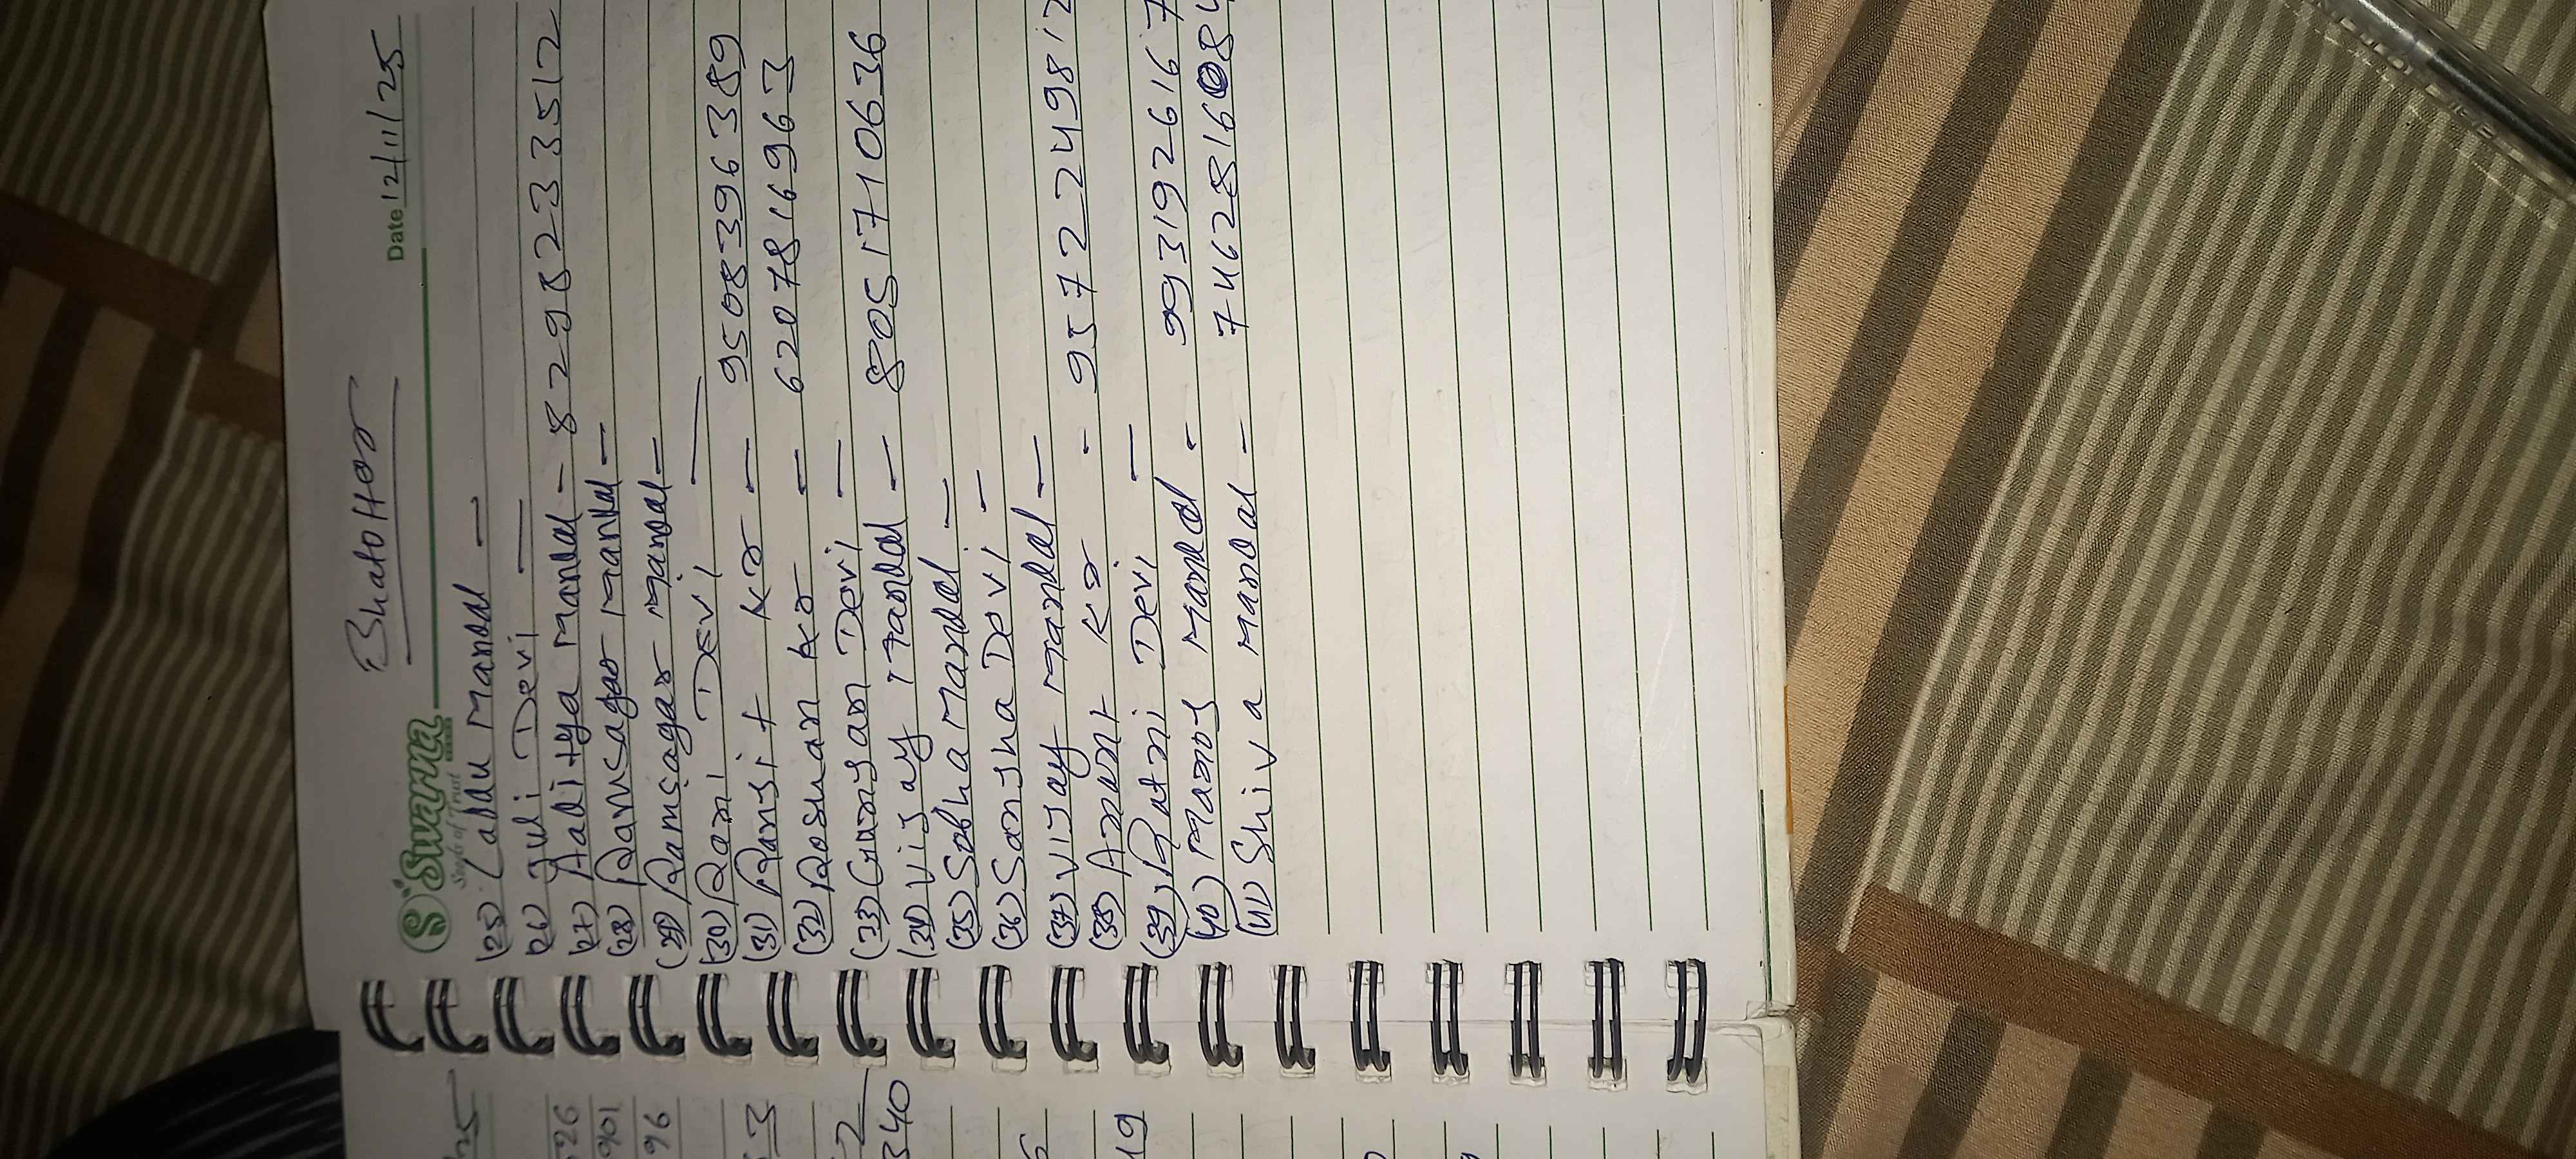 Bhatottar
Swarna
Single of Trust
Date 12/11/25
(25) Laddu Mandal —
(26) Juli Devi —
(27) Aaditya Mandal - 8298233512
(28) Ramsagar Mandal —
(29) Ramsagar Mandal —
(30) Rani Devi —
(31) Ranjit Kr — 9508396389
(32) Roshan Kr — 6207816963
(33) Gunjan Devi —
(34) Vijay Mandal — 8051710636
(35) Sobha Mandal —
(36) Sanjha Devi —
(37) Vijay Mandal —
(38) Anant Kr - 9572249812
(39) Ratni Devi —
(40) Manoj Mandal - 9931926167
(41) Shiva Mandal - 746281608
25
526
901
96
53
52
340
19